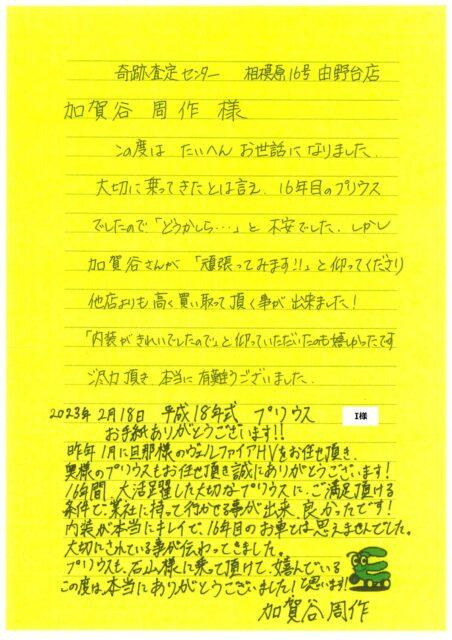 奇跡査定センター 相模原16号由野台店
加賀谷 周作 様
この度は たいへん お世話に なりました。
大切に乗ってきたとは言え、16年目のプリウス
でしたので「どうかしら…」と 不安でした。しかし
加賀谷さんが 「頑張ってみます!!」と仰ってくださり
他店よりも高く買い取って頂く事が出来ました!
「内装がきれいでしたので」と仰っていただいたのも嬉しかったです
ご尽力頂き 本当に有難うございました。
2023年2月18日 平成18年式 プリウス I様
お手紙ありがとうございます!!
昨年1月に旦那様のヴェルファイアHVをお任せ頂き、
奥様のプリウスもお任せ頂き誠にありがとうございます!
16年間、大活躍した大切なプリウスに、ご満足頂ける
条件で弊社に持って行かせる事が出来、良かったです!
内装が本当にキレイで、16年目のお車とは思えませんでした。
大切にされている事が伝わってきました。
プリウスも、石山様に乗って頂けて、嬉んでいる
と思います!
この度は、本当にありがとうございました!
加賀谷周作